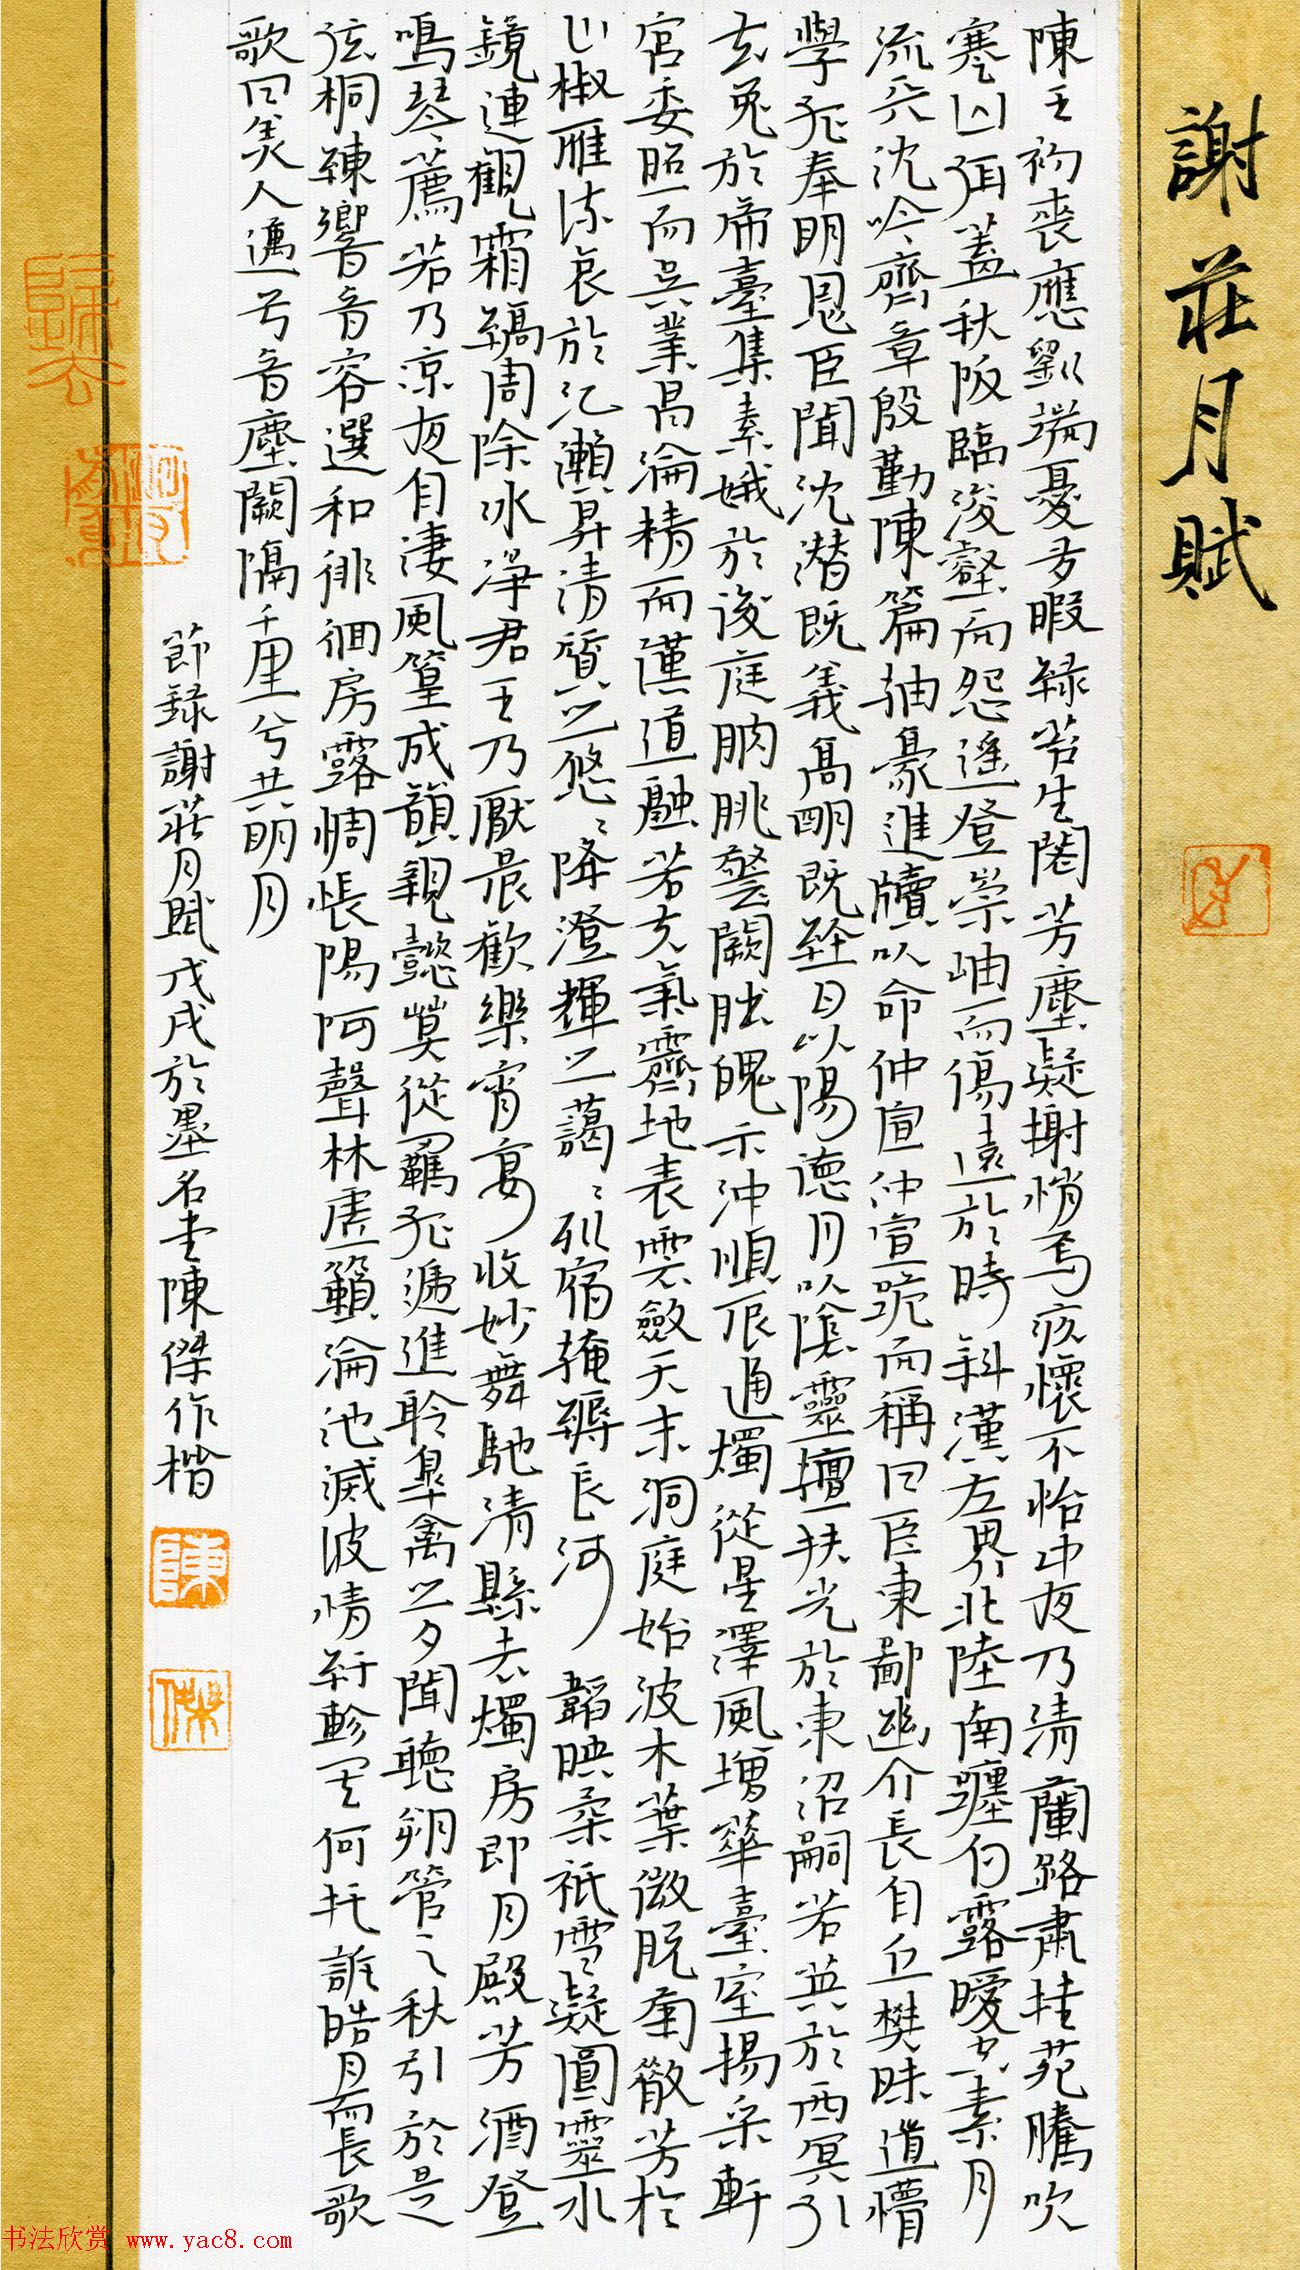 謝莊月賦
陳王初喪應劉端憂多暇綠苔生閣芳塵凝榭悄焉疚懷不怡中夜乃清蘭路肅桂苑騰吹
寒山弭蓋秋阪臨浚壑而怨遙登崇岫而傷遠於時斜漢左界北陸南躔白露曖空素月
流天沈吟齊章殷勤陳篇抽毫進牘以命仲宣仲宣跪而稱曰臣東鄙幽介長自丘樊昧道懵
學孤奉明恩臣聞沈潛既義高明既經日以陽德月以陰靈擅扶光於東沼嗣若英於西冥引
玄兔於帝臺集素娥於後庭朒朓警闕朏魄示沖順辰通燭從星澤風增華臺室揚采軒
宮委照而吳業昌淪精而漢道融若夫氣霽地表雲斂天末洞庭始波木葉微脫菊散芳於
山椒雁流哀於江瀨昇清質之悠々降澄輝之藹々列宿掩縟長河韜映柔祇雪凝圓靈水
鏡連觀霜縞周除冰淨君王乃厭晨歡樂宵宴收妙舞馳清縣去燭房即月殿芳酒登
鳴琴薦若乃涼夜自淒風篁成韻親懿莫從羈孤遞進聆皋禽之夕聞聽朔管之秋引於是
弦桐練響音容選和徘徊房露惆悵陽阿聲林虛籟淪池滅波情紆軫其何托訴皓月而長歌
歌曰美人邁兮音塵闕隔千里兮共明月
節錄謝莊月賦戊戌於墨名堂陳傑作楷
陳
傑
书法欣赏 www.yac8.com